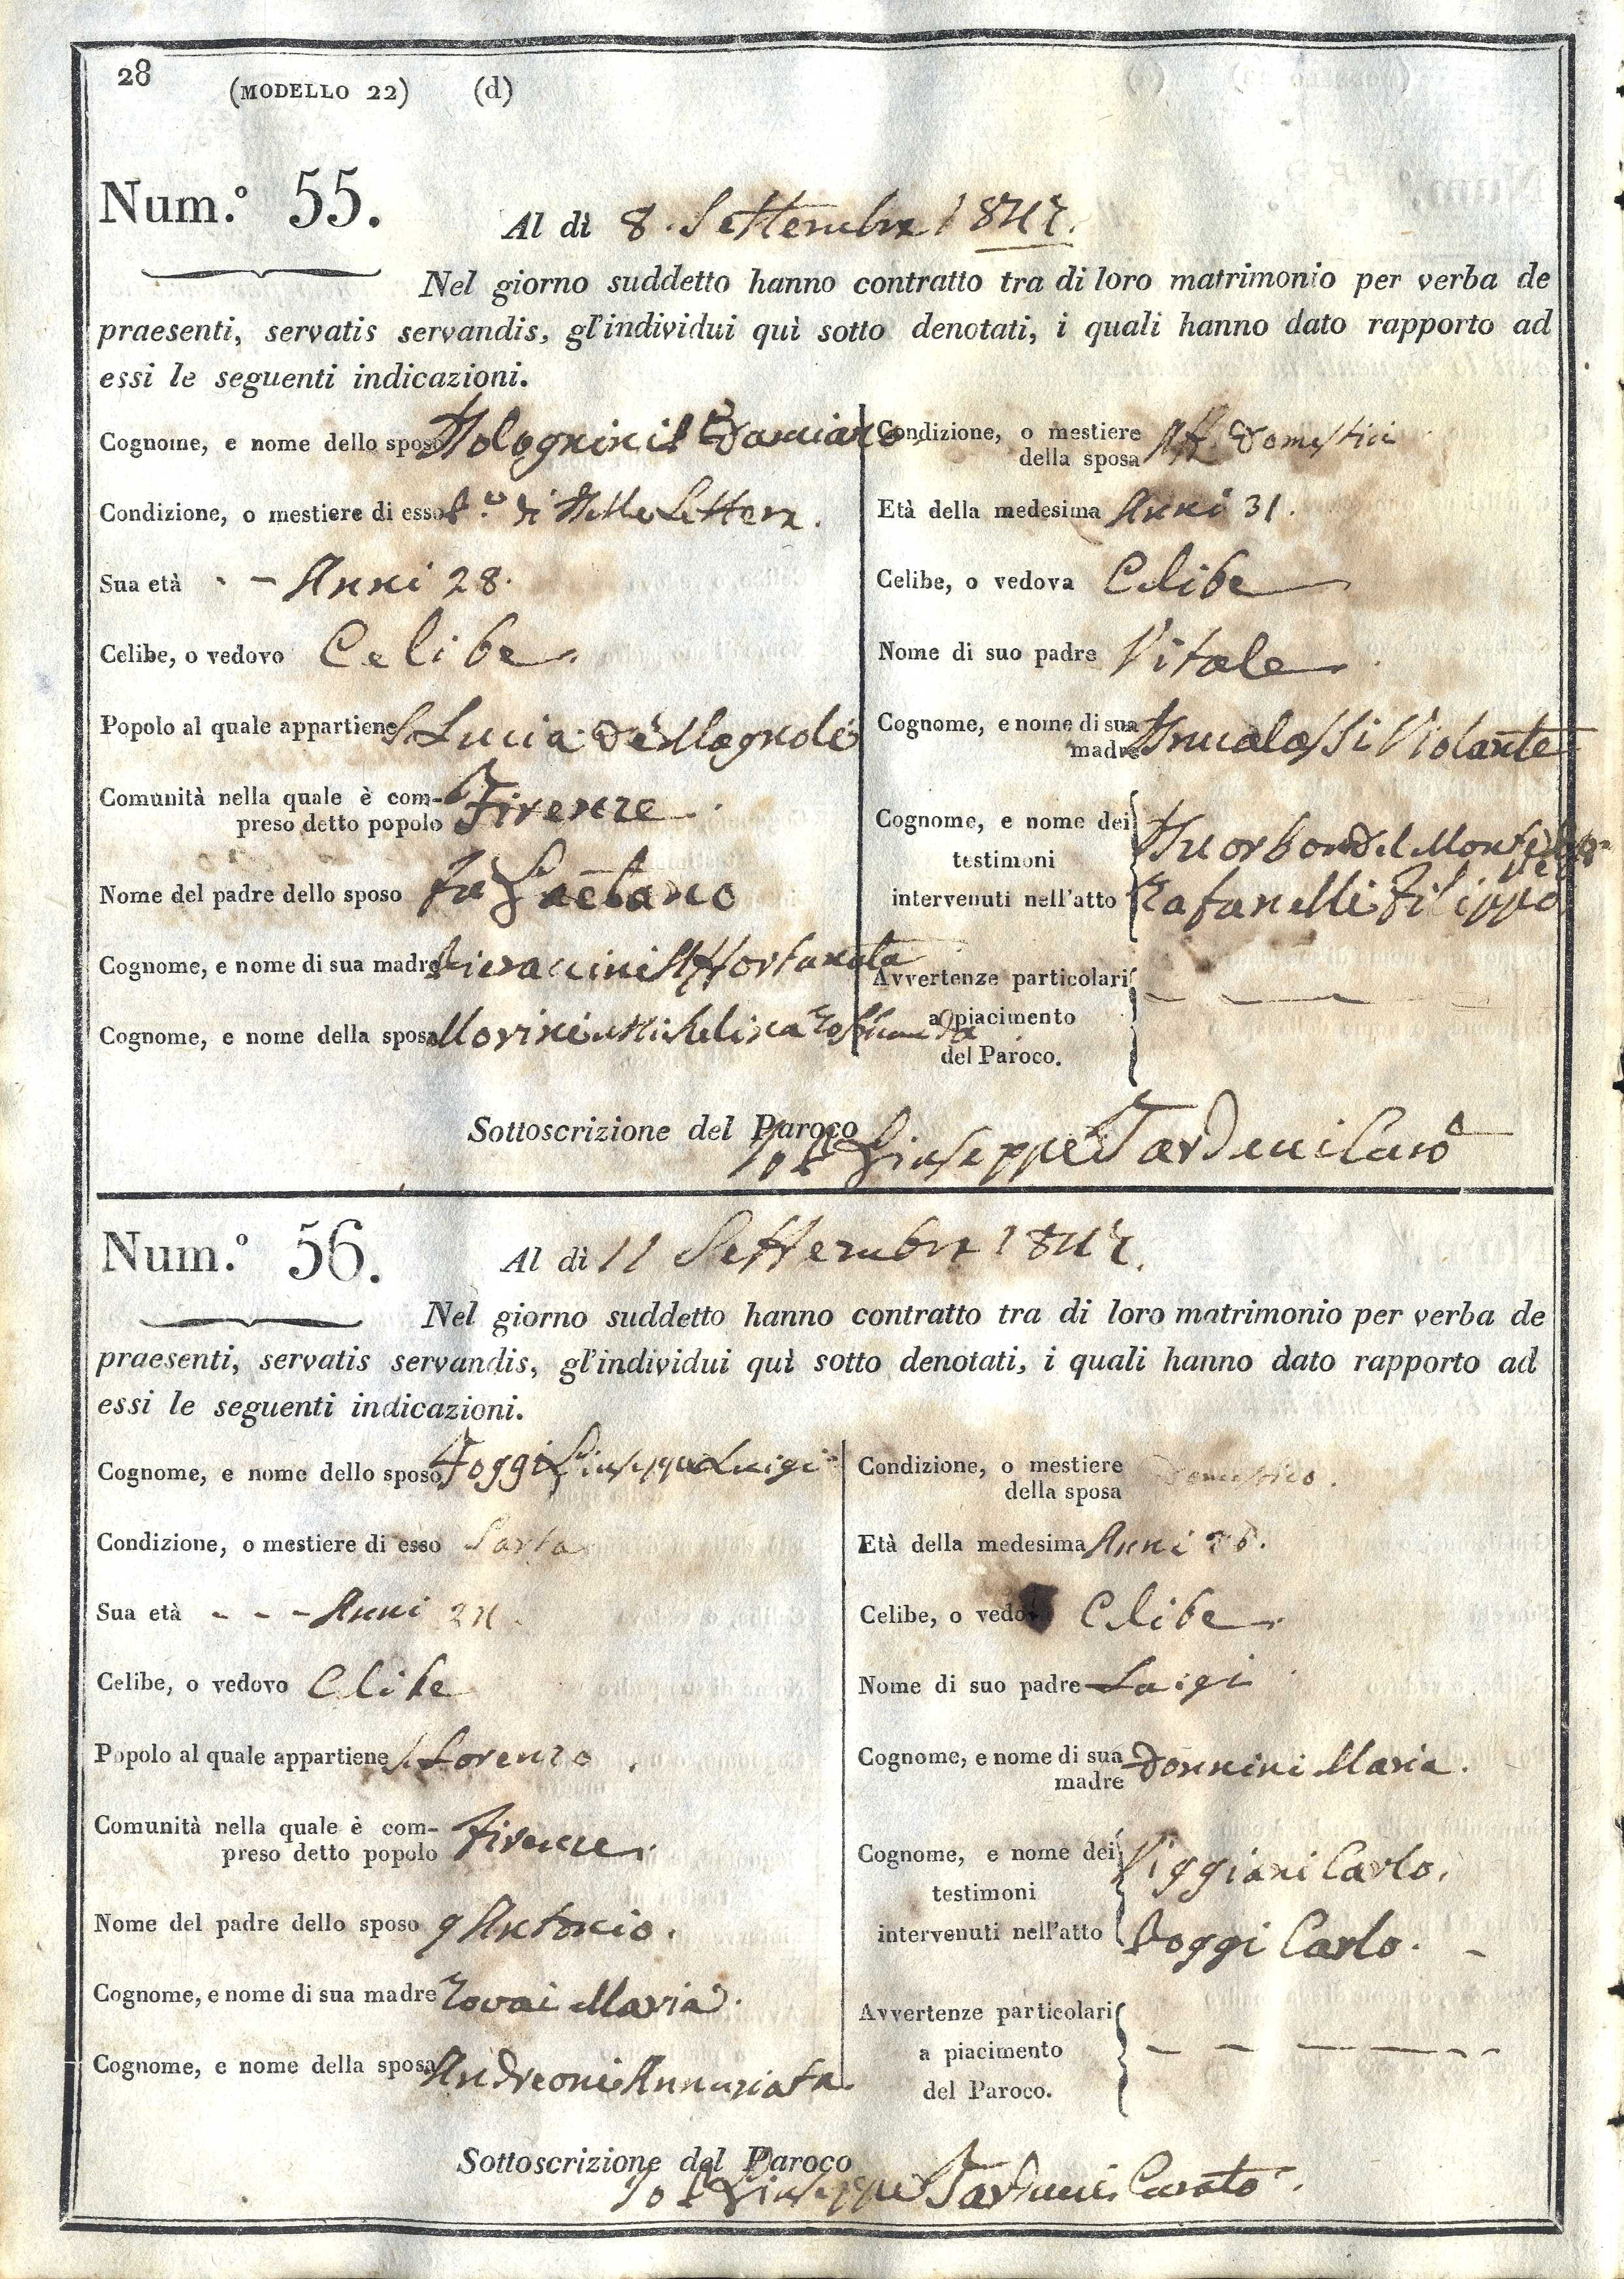 28
(MODELLO 22) (d)
Num.º 55.
Al dì 8. Settembre 1847.
Nel giorno suddetto hanno contratto tra di loro matrimonio per verba de
praesenti, servatis servandis, gl'individui quì sotto denotati, i quali hanno dato rapporto ad
essi le seguenti indicazioni.
Cognome, e nome dello sposo Damiano
Condizione, o mestiere di esso di Belle Lettere.
Sua età - - Anni 28.
Celibe, o vedovo Celibe.
Popolo al quale appartiene S. Lucia de Magnoli
Comunità nella quale è com-
preso detto popolo Firenze.
Nome del padre dello sposo fu Gaetano
Cognome, e nome di sua madre Pieraccini Affortunata
Cognome, e nome della sposa Morini Michelina
Condizione, o mestiere
della sposa Att. Domestici
Età della medesima Anni 31.
Celibe, o vedova Celibe
Nome di suo padre Vitale.
Cognome, e nome di sua
madre Violante
Cognome, e nome dei
testimoni del Monte
intervenuti nell'atto Rafanelli Filippo
Avvertenze particolari
a piacimento
del Paroco.
Sottoscrizione del Paroco
Giuseppe Curo
Num.º 56.
Al dì 11 Settembre 1847.
Nel giorno suddetto hanno contratto tra di loro matrimonio per verba de
praesenti, servatis servandis, gl'individui quì sotto denotati, i quali hanno dato rapporto ad
essi le seguenti indicazioni.
Cognome, e nome dello sposo Foggi Giuseppe Luigi
Condizione, o mestiere di esso Sarto
Sua età - - - Anni 24.
Celibe, o vedovo Celibe
Popolo al quale appartiene S. Lorenzo.
Comunità nella quale è com-
preso detto popolo Firenze.
Nome del padre dello sposo q Antonio.
Cognome, e nome di sua madre Rovai Maria.
Cognome, e nome della sposa Andreoni Annunziata.
Condizione, o mestiere
della sposa
Età della medesima Anni
Celibe, o vedova Celibe.
Nome di suo padre Luigi
Cognome, e nome di sua
madre Donnini Maria.
Cognome, e nome dei
testimoni Viggiani Carlo.
intervenuti nell'atto Poggi Carlo.
Avvertenze particolari
a piacimento
del Paroco.
Sottoscrizione del Paroco
Giuseppe Curato.